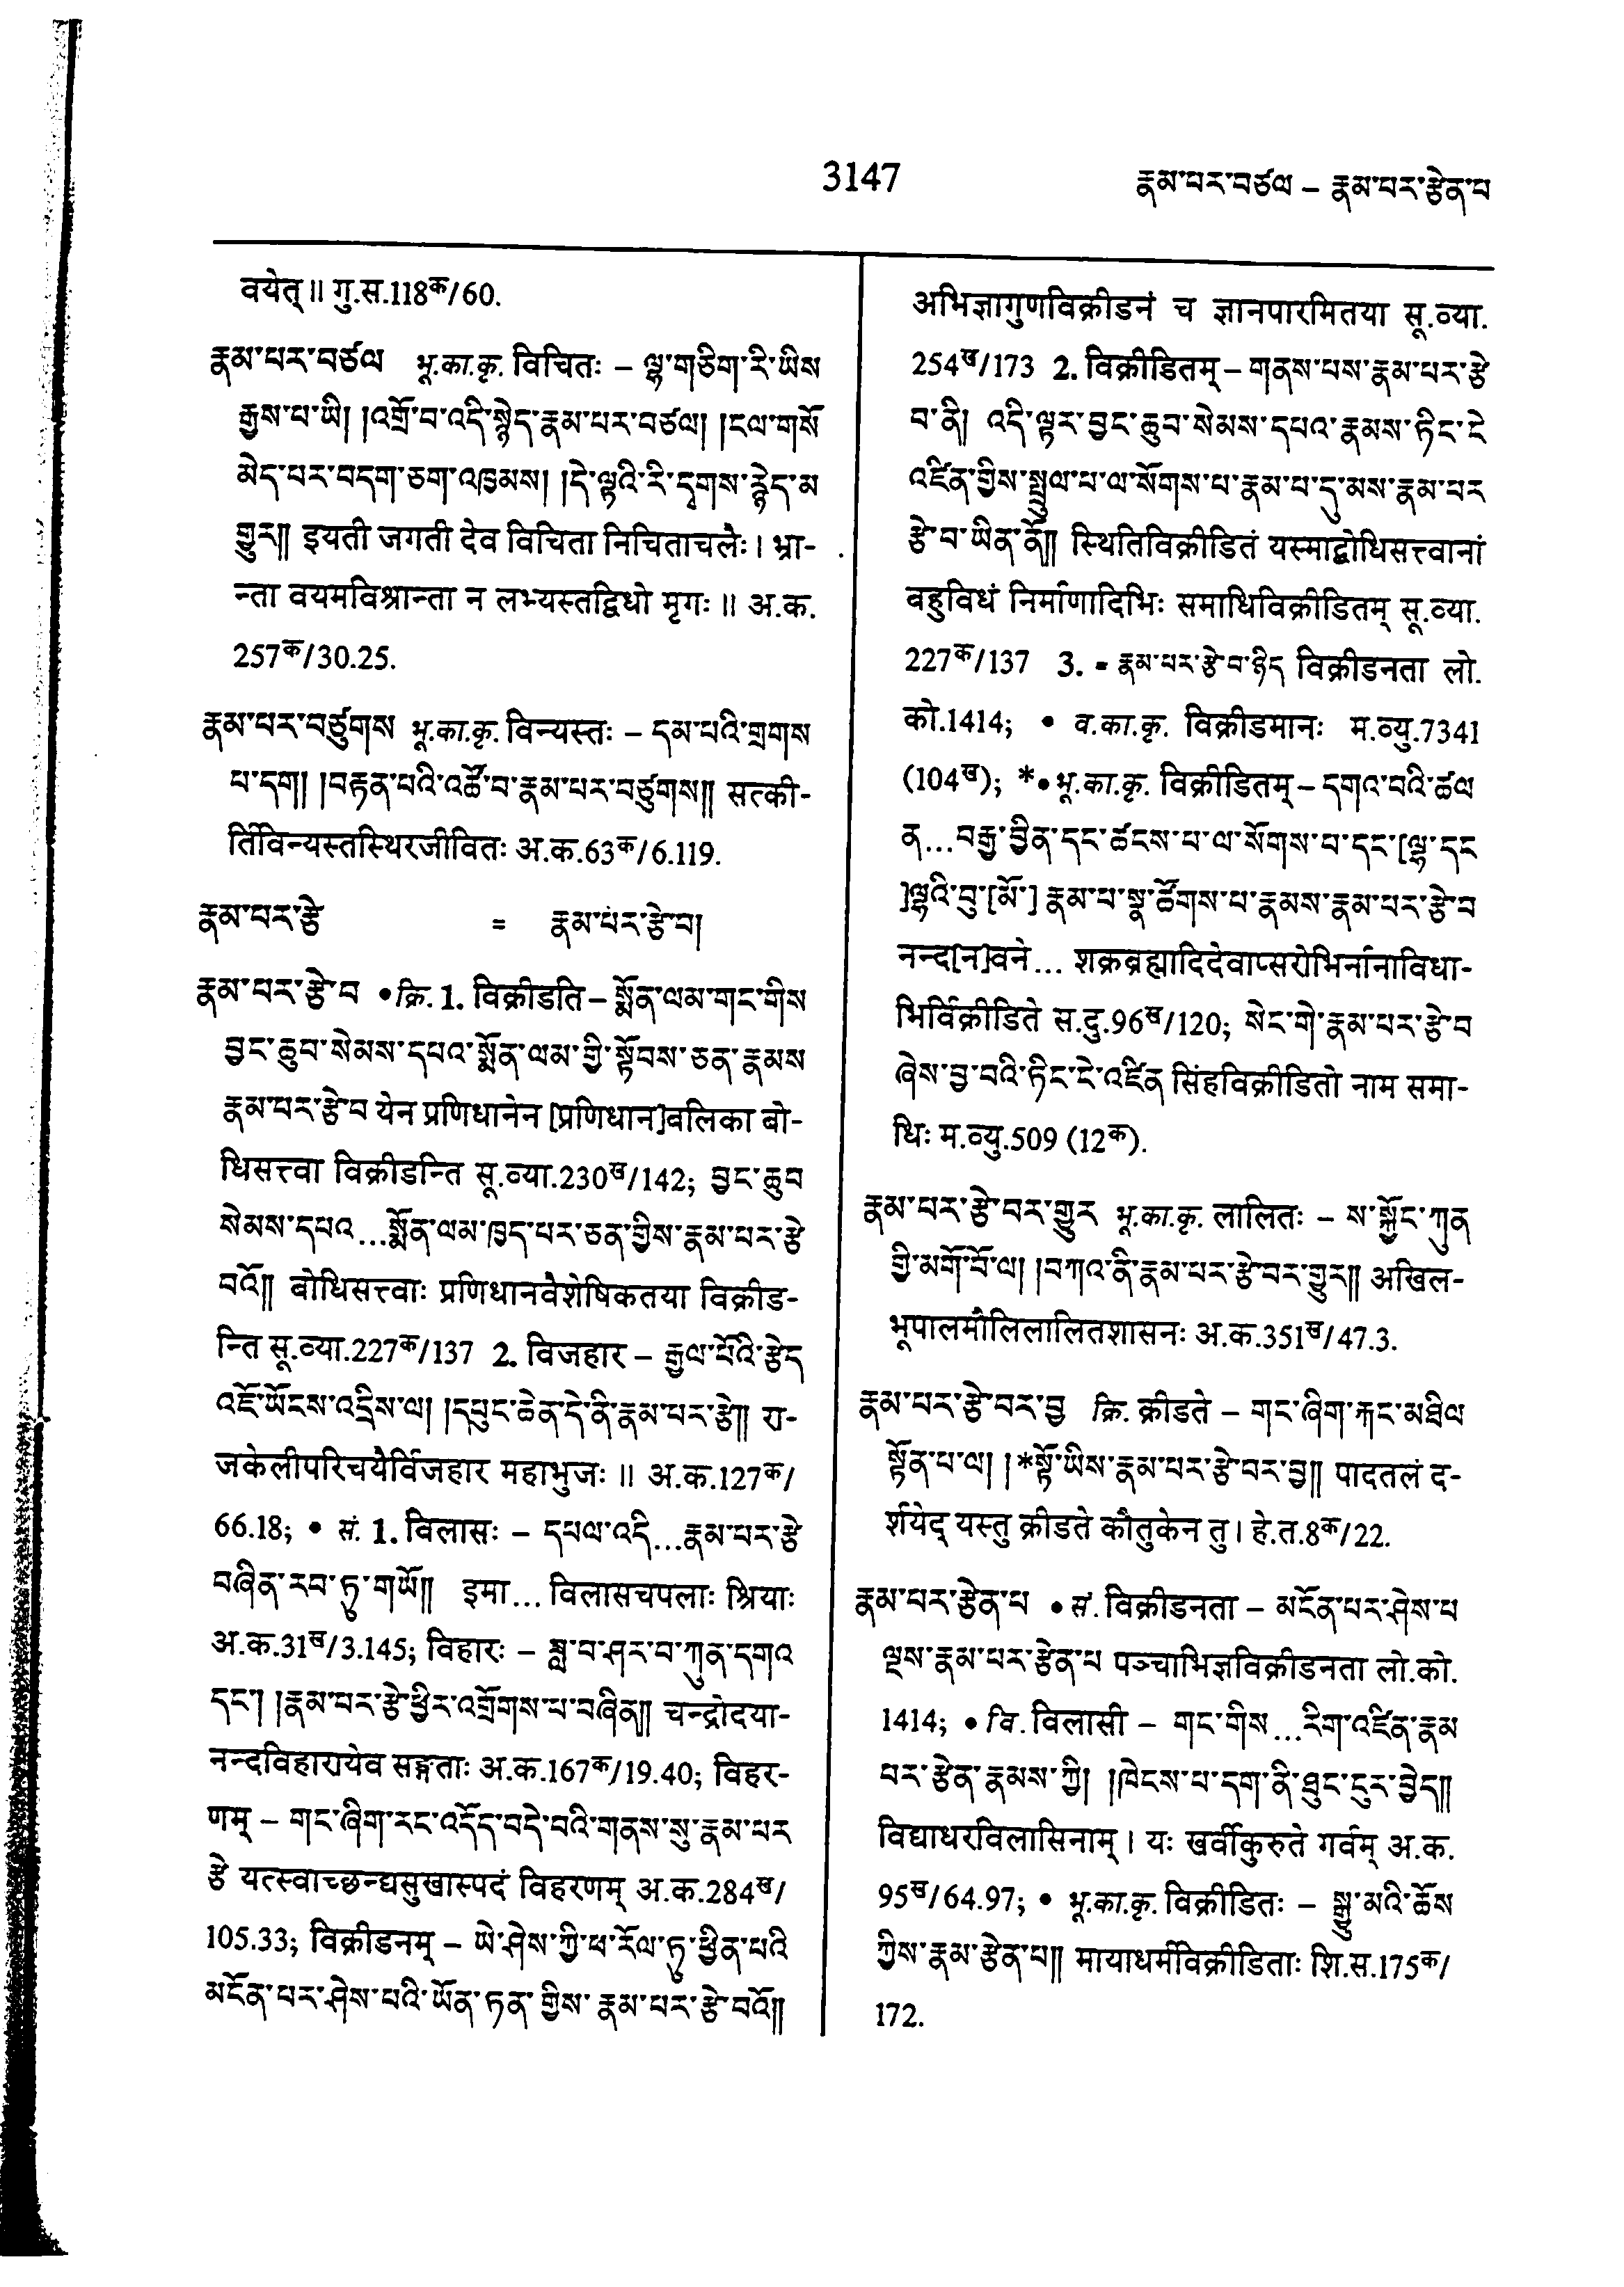 3147
རྣམ་པར་བཙལ – རྣམ་པར་རྩེན་པ
वयेत्॥ गु.स.118क/60.
རྣམ་པར་བཙལ भू.का.कृ. विचितः – ལྷ་གཅིག་རི་ཡིས
རྒྱས་པ་ཡི། །འགྲོ་བ་འདི་སྙེད་རྣམ་པར་བཙལ། །ངལ་གསོ
མེད་པར་བདག་ཅག་འཁྱམས། །དེ་ལྟའི་རི་དྭགས་རྙེད་མ
གྱུར༎ इयती जगती देव विचिता निचिताचलैः। भ्रा-
न्ता वयमविश्रान्ता न लभ्यस्तद्विधो मृगः॥ अ.क.
257क/30.25.
རྣམ་པར་བཙུགས भू.का.कृ. विन्यस्तः – དམ་པའི་གྲགས
པ་དག། །བརྟན་པའི་འཚོ་བ་རྣམ་པར་བཙུགས༎ सत्की-
र्तिविन्यस्तस्थिरजीवितः अ.क.63क/6.119.
རྣམ་པར་རྩེ = རྣམ་པར་རྩེ་བ།
རྣམ་པར་རྩེ་བ •क्रि. 1. विक्रीडति – སྨོན་ལམ་གང་གིས
བྱང་ཆུབ་སེམས་དཔའ་སྨོན་ལམ་གྱི་སྟོབས་ཅན་རྣམས
རྣམ་པར་རྩེ་བ येन प्रणिधानेन [प्रणिधान]बलिका बो-
धिसत्त्वा विक्रीडन्ति सू.व्या.230ख/142; བྱང་ཆུབ
སེམས་དཔའ...སྨོན་ལམ་ཁྱད་པར་ཅན་གྱིས་རྣམ་པར་རྩེ
བའོ༎ बोधिसत्त्वाः प्रणिधानवैशेषिकतया विक्रीड-
न्ति सू.व्या.227क/137 2. विजहार – རྒྱལ་པོའི་རྩེད
འཇོ་ཡོངས་འདྲིས་ལ། །དཔུང་ཆེན་དེ་ནི་རྣམ་པར་རྩེ༎ रा-
जकेलीपरिचयैर्विजहार महाभुजः॥ अ.क.127क/
66.18; • सं. 1. विलासः – དཔལ་འདི...རྣམ་པར་རྩེ
བཞིན་རབ་ཏུ་གཡོ༎ इमा... विलासचपलाः श्रियाः
अ.क.31ख/3.145; विहारः – ཟླ་བ་ཤར་བ་ཀུན་དགའ
དང་། །རྣམ་པར་རྩེ་ཕྱིར་འགྲོགས་པ་བཞིན༎ चन्द्रोदया-
नन्दविहारायेव सङ्गताः अ.क.167क/19.40; विहर-
णम् – གང་ཞིག་རང་འདོད་བདེ་བའི་གནས་སུ་རྣམ་པར
རྩེ यत्स्वाच्छन्द्यसुखास्पदं विहरणम् अ.क.284ख/
105.33; विक्रीडनम् – ཡེ་ཤེས་ཀྱི་ཕ་རོལ་ཏུ་ཕྱིན་པའི
མངོན་པར་ཤེས་པའི་ཡོན་ཏན་གྱིས་རྣམ་པར་རྩེ་བའོ༎
अभिज्ञागुणविक्रीडनं च ज्ञानपारमितया सू.व्या.
254ख/173 2. विक्रीडितम् – གནས་པས་རྣམ་པར་རྩེ
བ་ནི། འདི་ལྟར་བྱང་ཆུབ་སེམས་དཔའ་རྣམས་ཏིང་ངེ
འཛིན་གྱིས་སྤྲུལ་པ་ལ་སོགས་པ་རྣམ་པ་དུ་མས་རྣམ་པར
རྩེ་བ་ཡིན་ནོ༎ स्थितिविक्रीडितं यस्माद्बोधिसत्त्वानां
बहुविधं निर्माणादिभिः समाधिविक्रीडितम् सू.व्या.
227क/137 3. = རྣམ་པར་རྩེ་བ་ཉིད विक्रीडनता लो.
को.1414; • व.का.कृ. विक्रीडमानः म.व्यु.7341
(104ख); *•भू.का.कृ. विक्रीडितम् – དགའ་བའི་ཚལ
ན...བརྒྱ་བྱིན་དང་ཚངས་པ་ལ་སོགས་པ་དང་[ལྷ་དང
]ལྷའི་བུ་[མོ་] རྣམ་པ་སྣ་ཚོགས་པ་རྣམས་རྣམ་པར་རྩེ་བ
नन्द[न]वने... शक्रब्रह्मादिदेवाप्सरोभिर्नानाविधा-
भिर्विक्रीडिते स.दु.96ख/120; སེང་གེ་རྣམ་པར་རྩེ་བ
ཞེས་བྱ་བའི་ཏིང་ངེ་འཛིན सिंहविक्रीडितो नाम समा-
धिः म.व्यु.509 (12क).
རྣམ་པར་རྩེ་བར་གྱུར भू.का.कृ. लालितः – ས་སྐྱོང་ཀུན
གྱི་མགོ་བོ་ལ། །བཀའ་ནི་རྣམ་པར་རྩེ་བར་གྱུར༎ अखिल-
भूपालमौलिलालितशासनः अ.क.351ख/47.3.
རྣམ་པར་རྩེ་བར་བྱ क्रि. क्रीडते – གང་ཞིག་རྐང་མཐིལ
སྟོན་པ་ལ། །*སྟོ་ཡིས་རྣམ་པར་རྩེ་བར་བྱ༎ पादतलं द-
र्शयेद् यस्तु क्रीडते कौतुकेन तु। हे.त.8क/22.
རྣམ་པར་རྩེན་པ •सं. विक्रीडनता – མངོན་པར་ཤེས་པ
ལྔས་རྣམ་པར་རྩེན་པ पञ्चाभिज्ञविक्रीडनता लो.को.
1414; •वि. विलासी – གང་གིས...རིག་འཛིན་རྣམ
པར་རྩེན་རྣམས་ཀྱི། །ཁེངས་པ་དག་ནི་ཐུང་དུར་བྱེད༎
विद्याधरविलासिनाम्। यः खर्वीकुरुते गर्वम् अ.क.
95ख/64.97; • भू.का.कृ. विक्रीडितः – སྒྱུ་མའི་ཆོས
ཀྱིས་རྣམ་རྩེན་པ༎ मायाधर्मविक्रीडिताः शि.स.175क/
172.